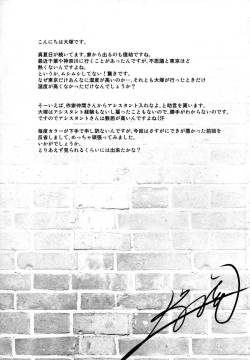 こんにちは大塚です。
真夏日が続いてます、家から出るのも億劫ですね。
最近千葉や神奈川に行くことがあったんですが、不思議と東京ほど
熱くないんですよね。
というか、ムシムシしてない！驚きです。
なぜ東京だけあんなに湿度が高いのか…、それとも大塚が行ったときだけ
湿度が高くなかっただけなんでしょうか？
そーいえば、作家仲間さんからアシスタント入れなよ、と助言を貰います。
ですがアシスタント経験もないし、雇ったこともないので、勝手がわからないのです。
ですのでアシスタントさんは敷居が高いんですよね！汗
毎度カラーが下手で申し訳ないんですが、今回はさすがにできが悪かった前回を
反省しまして、頑張ってみました。
いかがでしょうか。
とりあえず見られるくらいには出来たかな？